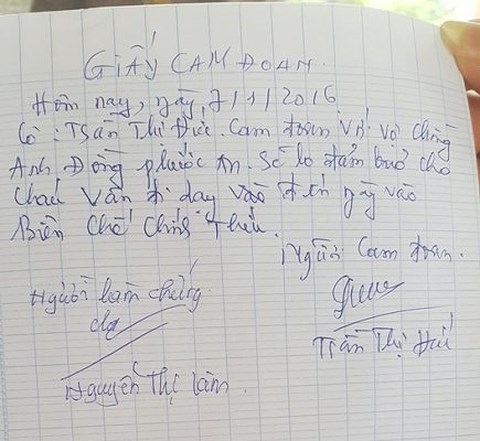 GIẤY CAM ĐOAN.
Hôm nay, ngày, 7/1/2016
Cô: Trần Thị Đức. Cam đoan với vợ chồng
Anh Đồng phước An. Sẽ lo đảm bảo cho
cháu Vân đi dạy vào đến ngày vào
Biên chế chính thức.
Người Cam đoan.
Người làm chứng
Trần Thị Đức
Nguyễn Thị Làm.